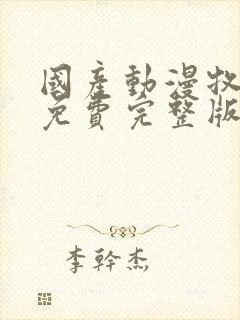 國產動漫牧
免費完整版
李幹杰